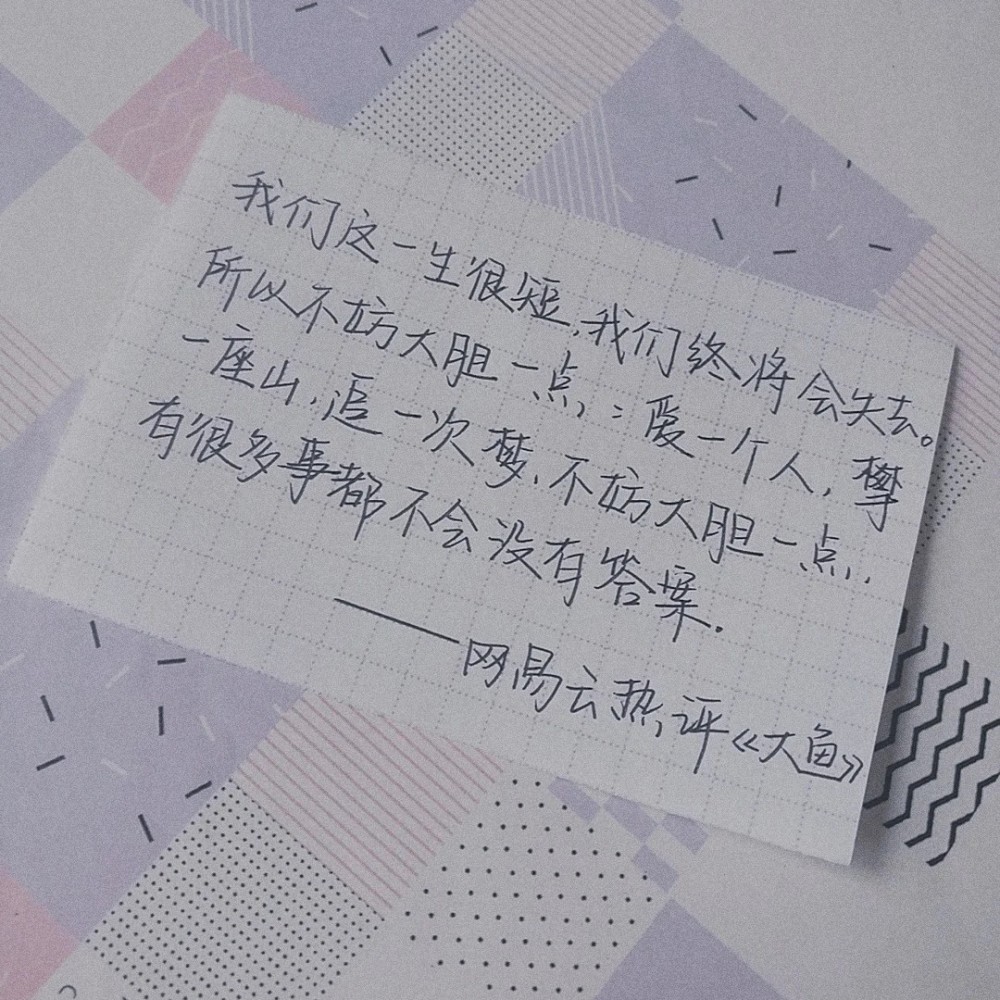 我们这一生很短,我们终将会失去。
所以不妨大胆一点,:爱一个人,攀
一座山,追一次梦,不妨大胆一点,.
有很多事都不会没有答案.
——网易云热评《大鱼》